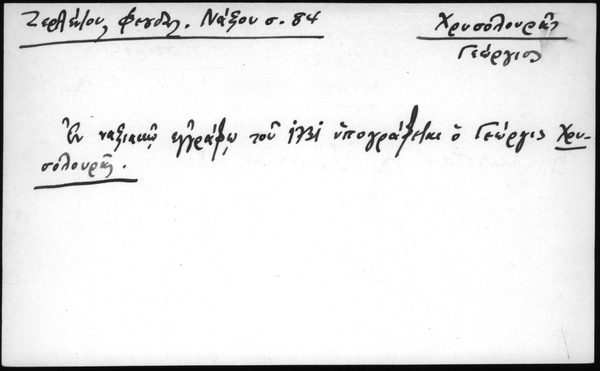 Ζερλέντου, Φεουδ. Νάξου σ. 84
Χρυσολουρᾶς
Γεώργιος
Ἐν ναξιακῷ ἐγγράφῳ τοῦ 1731 ὑπογράφεται ὁ Γεώργιος Χρυ-
σολουρᾶς.